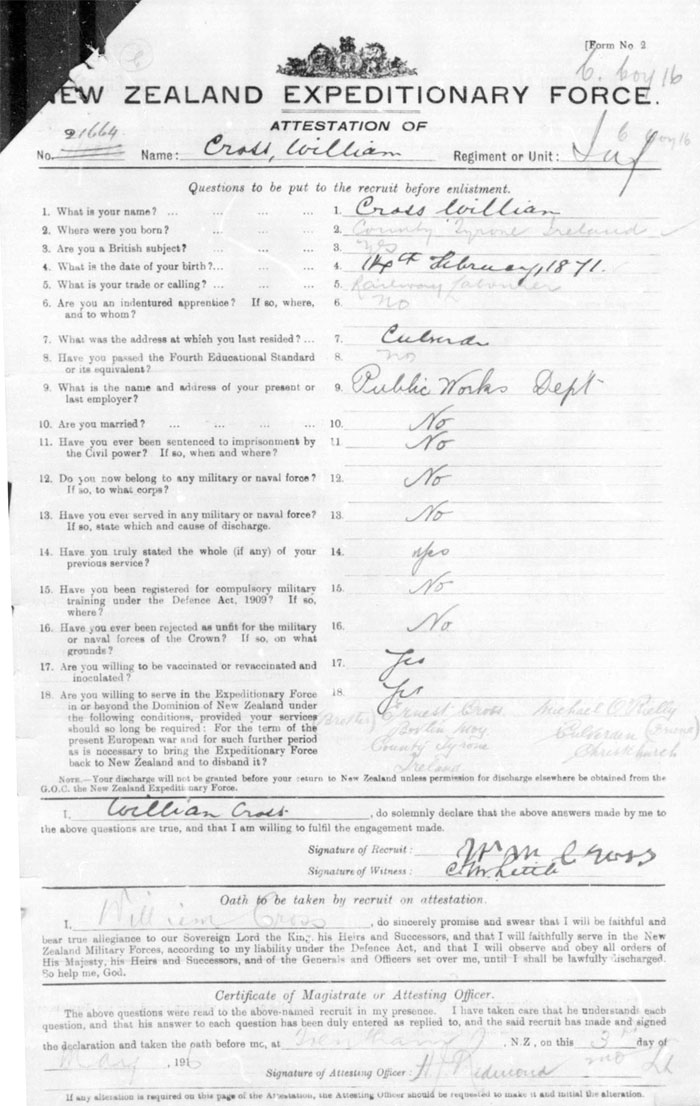 [Form No 2
C. Coy 16
NEW ZEALAND EXPEDITIONARY FORCE.
ATTESTATION OF
No. 21664 Name: Cross, William Regiment or Unit: Inf C Coy 16
Questions to be put to the recruit before enlistment.
1. What is your name? ... ... ... ... 1. Cross William
2. Where were you born? ... ... ... 2. County Tyrone Ireland
3. Are you a British subject? ... ... ... 3. Yes
4. What is the date of your birth?... ... ... 4. 14th February, 1871.
5. What is your trade or calling? ... ... ... 5. Railway Labourer
6. Are you an indentured apprentice? If so, where, 6. No
and to whom?
7. What was the address at which you last resided? ... 7. Culverden
8. Have you passed the Fourth Educational Standard 8. No
or its equivalent?
9. What is the name and address of your present or 9. Public Works Dept
last employer?
10. Are you married? ... ... ... ... 10. No
11. Have you ever been sentenced to imprisonment by 11 No
the Civil power? If so, when and where?
12. Do you now belong to any military or naval force? 12. No
If so, to what corps?
13. Have you ever served in any military or naval force? 13. No
If so, state which and cause of discharge.
14. Have you truly stated the whole (if any) of your 14. yes
previous service?
15. Have you been registered for compulsory military 15. No
training under the Defence Act, 1909? If so,
where?
16. Have you ever been rejected as unfit for the military 16. No
or naval forces of the Crown? If so, on what
grounds?
17. Are you willing to be vaccinated or revaccinated and 17. Yes
inoculated?
18. Are you willing to serve in the Expeditionary Force 18. Yes
in or beyond the Dominion of New Zealand under
the following conditions, provided your services (Brother) Ernest Cross Michael O'Rielly
should so long be required: For the term of the Moy Culverden (Friend)
present European war and for such further period County Tyrone Christchurch
as is necessary to bring the Expeditionary Force Ireland
back to New Zealand and to disband it?
NOTE.—Your discharge will not be granted before your return to New Zealand unless permission for discharge elsewhere be obtained from the
G.O.C. the New Zealand Expeditionary Force.
I, William Cross, do solemnly declare that the above answers made by me to
the above questions are true, and that I am willing to fulfil the engagement made.
Signature of Recruit: Wm Cross
Signature of Witness:
Oath to be taken by recruit on attestation.
I, William Cross, do sincerely promise and swear that I will be faithful and
bear true allegiance to our Sovereign Lord the King, his Heirs and Successors, and that I will faithfully serve in the New
Zealand Military Forces, according to my liability under the Defence Act, and that I will observe and obey all orders of
His Majesty, his Heirs and Successors, and of the Generals and Officers set over me, until I shall be lawfully discharged.
So help me, God.
Certificate of Magistrate or Attesting Officer.
The above questions were read to the above-named recruit in my presence. I have taken care that he understands each
question, and that his answer to each question has been duly entered as replied to, and the said recruit has made and signed
the declaration and taken the oath before me, at Trentham, N.Z., on this 3rd day of
May, 1916
Signature of Attesting Officer: Redmond Lt
If any alteration is required on this page of the Attestation, the Attesting Officer should be requested to make it and initial the alteration.